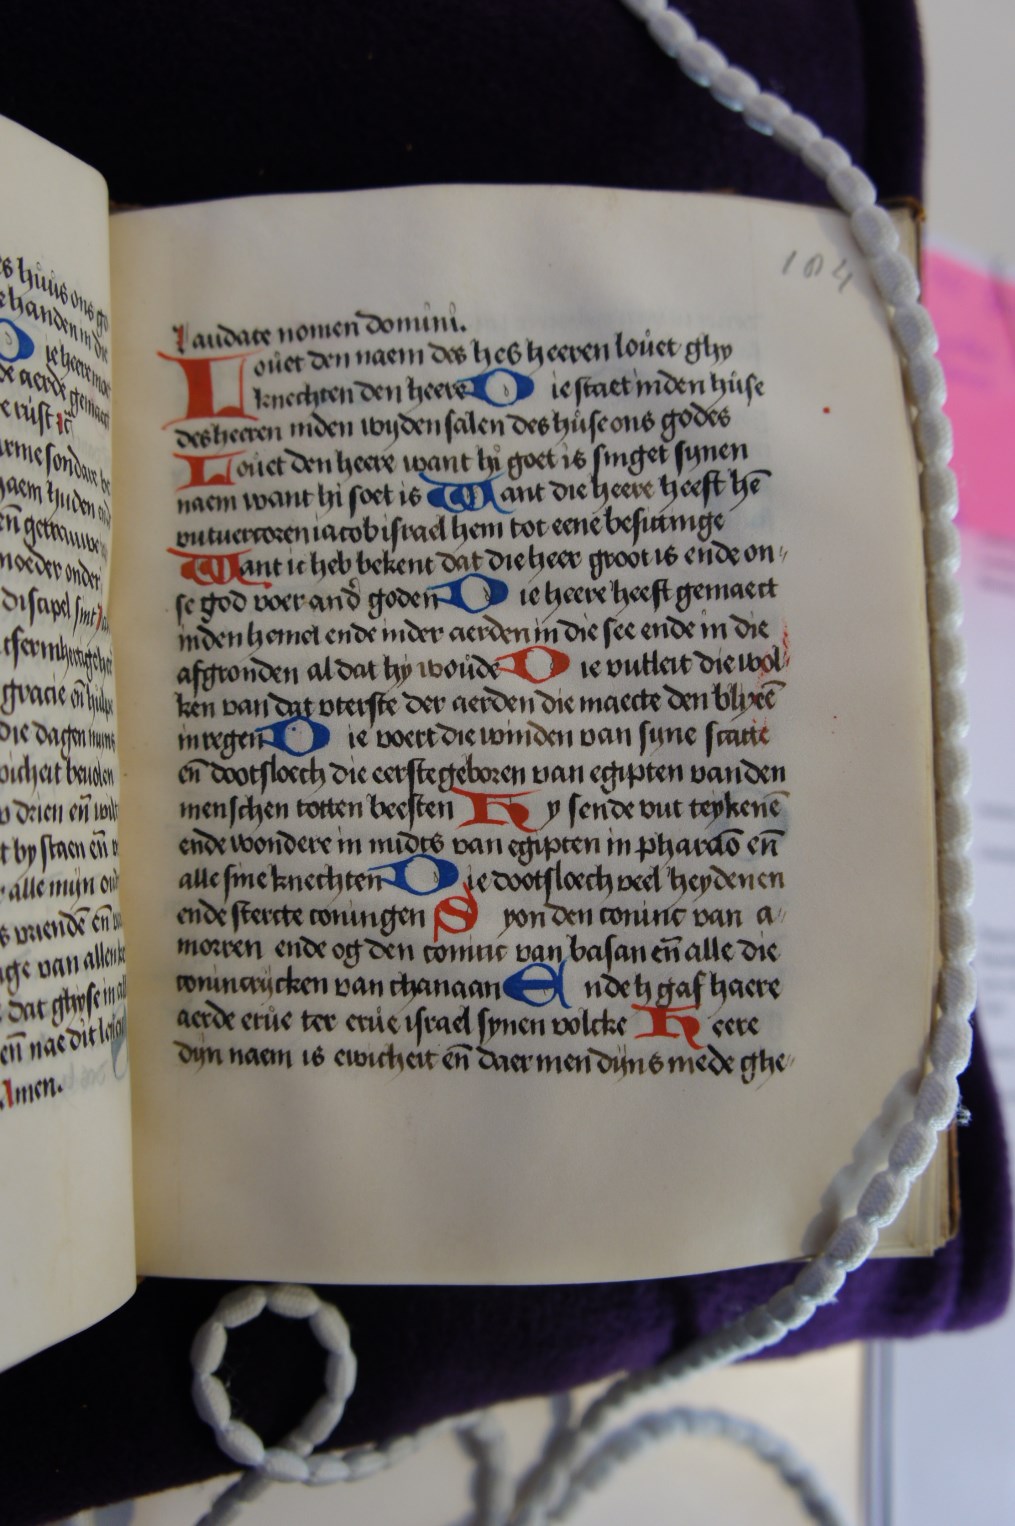 es huus ons go
e handen in die
D ie heere mae
de aerde gemaect
e rust
arme sondare be
naem huden en
en̄ getrauwe
moeder onder
discipel sint
tfermhertigehei
gracie en̄ hulpe
die dagen mijns
wicheit bevolen
drien en̄ wilt
t by staen en̄
alle mijn
s vriendē en̄
age van allen
dat ghyse in al
en̄ nae dit
Amen.
184
Laudate nomen domini.
Louet den naem des hēs heeren louet ghy
knechten den heere Die staet inden huse
des heeren inden wyden salen des huse ons godes
Louet den heere want hi goet is singet synen
naem want hi soet is Want die heere heeft hē
vutuercoren iacob israel hem tot eene besittinge
Want ic heb bekent dat die heer groot is ende on
se god voer and̄ goden Die heere heeft gemaect
inden hemel ende inder aerden in die see ende in die
afgronden al dat hy woude Die vutleit die wol
ken van dat vterste der aerden die maecte den blyxē
in regen Die voert die winden van syne scatte
en̄ dootsloech die eerste geboren van egipten van den
menschen totten beesten Hy sende vut teykenē
ende wondere in midts van egipten in pharao en̄
alle sine knechten Die dootsloech veel heydenen
ende stercte coningen Syon den coninc van a
morren ende og den coninc van basan en̄ alle die
conincrijcken van chanaan Ende h gaf haere
aerde erue ter erue israel synen volcke Heere
dijn naem is ewicheit en̄ daer men dijns mede ghe